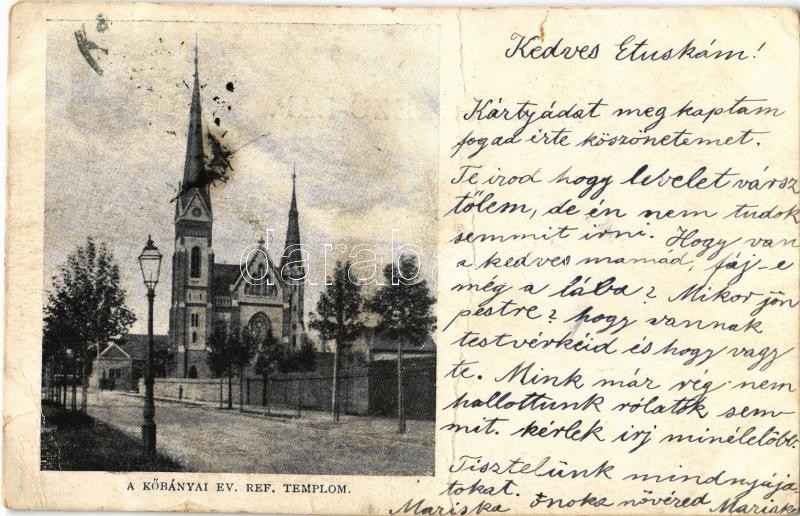 Kedves Etuskám!
Kártyádat meg kaptam
fogad érte köszönetemet.
Te irod hogy levelet vársz
tőlem, de én nem tudok
semmit irni. Hogy van
a kedves mamád, fáj-e
még a lába? Mikor jön
pestre? hogy vannak
testvérkéid és hogy vagy
te. Mink már rég nem
hallottunk rólatok sem-
mit. kérlek irj minélelőbb.
Tisztelünk mindnyája
tokat. önoka nővéred Mariska
Mariska
A KŐBÁNYAI EV. REF. TEMPLOM.
darabanth